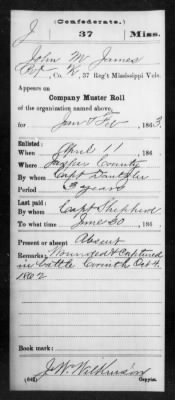 (Confederate.)
J 37 Miss.
John M James
Pvt, Co. K, 37 Reg't Mississippi Vols.
Appears on
Company Muster Roll
of the organization named above,
for Jan & Feb, 1863.
Enlisted:
When April 11, 186
Where Jasper County
By whom Capt Dantzler
Period 3 years
Last paid:
By whom Capt Shepherd
To what time June 30, 186
Present or absent Absent
Remarks: Wounded & Captured
in battle Corinth Oct 4,
1862
Book mark:
J. W. Wilkinson
(642) Copyist.